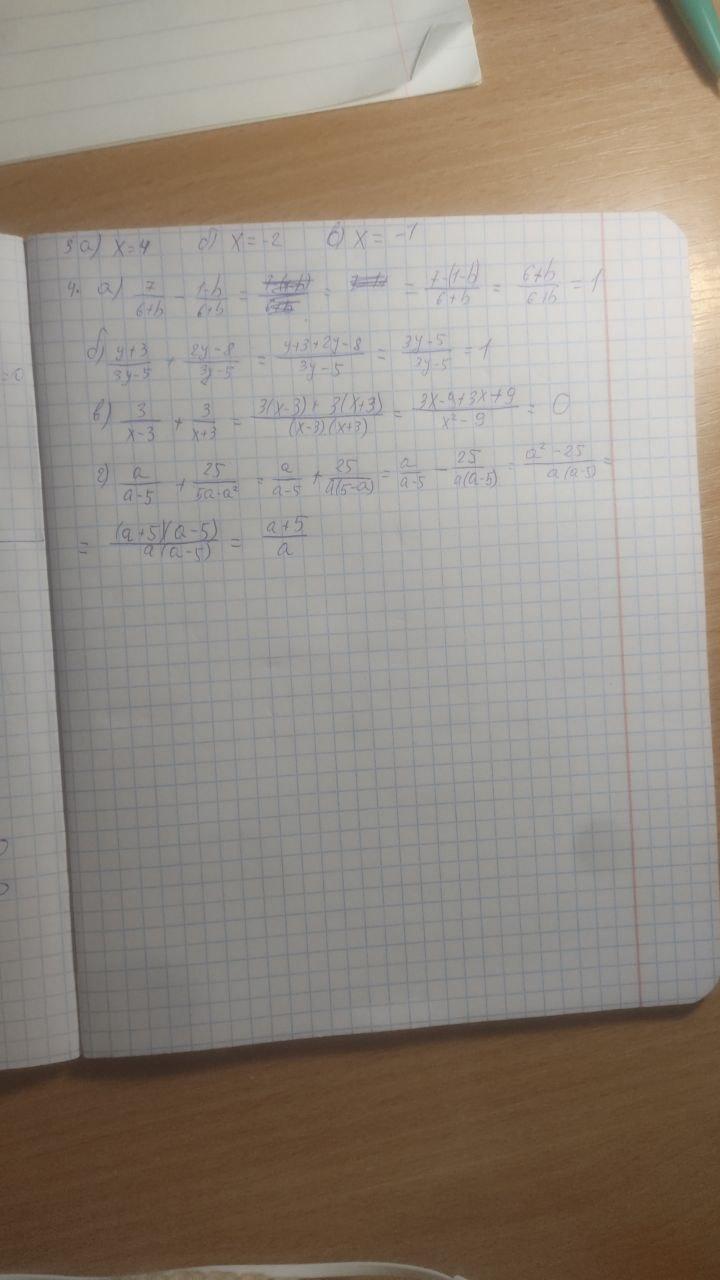 3 а) x=4 б) x=-2 в) x=-1
4. а) 7/(6+b) - (1-b)/(6+b) = = = (7-(1-b))/(6+b) = (6+b)/(6+b) = 1
б) (y+3)/(3y-5) + (2y-8)/(3y-5) = (y+3+2y-8)/(3y-5) = (3y-5)/(3y-5) = 1
в) 3/(x-3) + 3/(x+3) = (3(x-3)+3(x+3))/((x-3)(x+3)) = (3x-9+3x+9)/(x²-9) = 0
г) a/(a-5) + 25/(5a-a²) = a/(a-5) + 25/(a(5-a)) = a/(a-5) - 25/(a(a-5)) = (a²-25)/(a(a-5)) =
= ((a+5)(a-5))/(a(a-5)) = (a+5)/a
=0